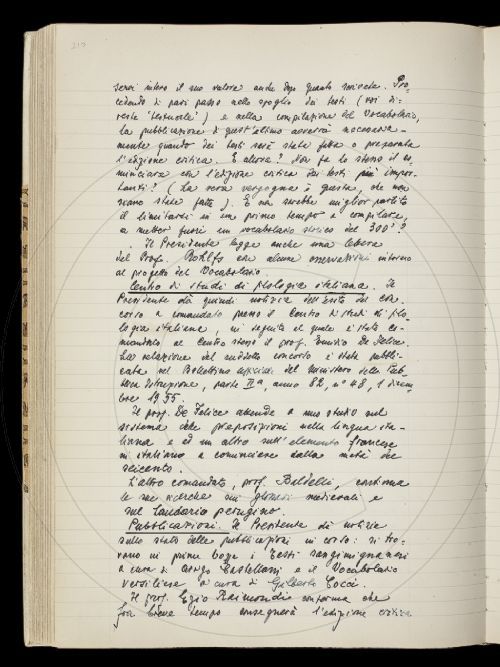 217
serei intero il suo valore anche dopo quanto
cedendo di pari passo nello spoglio dei testi (voi di-
reste 'testuale') e nella compilazione del Vocabolario,
la pubblicazione di quest'ultimo avverrà necessaria-
mente quando dei testi sarà stata fatta o preparata
l'edizione critica. E allora? Non fa lo stesso il co-
minciare con l'edizione critica dei testi più impor-
tanti? (La vera vergogna è questa, che non
siano state fatte). E non sarebbe miglior partito
il limitarsi in un primo tempo a compilare,
a metter fuori un vocabolario storico del 300?
Il Presidente legge anche una lettera
del Prof. Rohlfs con alcune osservazioni intorno
al progetto del Vocabolario.
Centro di studi di filologia italiana. Il
Presidente dà quindi notizia dell'esito del con-
corso a comandato presso il Centro di studi di filo-
logia italiana, in seguito al quale è stato co-
mandato al Centro stesso il prof. Emidio De Felice.
La relazione del suddetto concorso è stata pubbli-
cata nel Bollettino ufficiale del Ministero della Pub-
blica Istruzione, parte IIª, anno 82, nº 48, 1 dicem-
bre 1955.
Il prof. De Felice attende a uno studio sul
sistema delle preposizioni nella lingua ita-
liana e ad un altro sull'elemento francese
in italiano a cominciare dalla metà del
seicento.
L'altro comandato, prof. Baldelli, continua
le sue ricerche sui glossari medievali e
sul Laudario perugino.
Pubblicazioni. Il Presidente dà notizia
sullo stato delle pubblicazioni in corso: si tro-
vano in prime bozze i Testi sangimignanesi
a cura di Arrigo Castellani e il Vocabolario
versiliese a cura di Gilberto Cocci.
Il prof. Ezio Raimondi conferma che
fra breve tempo consegnerà l'edizione critica